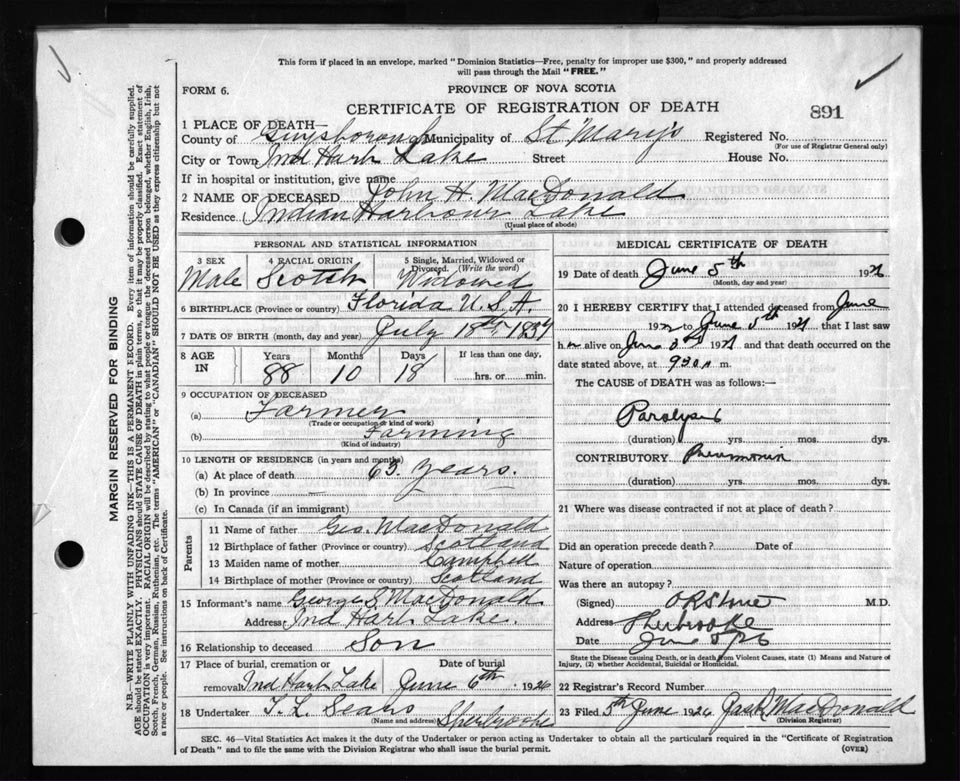 This form if placed in an envelope, marked "Dominion Statistics—Free, penalty for improper use $300," and properly addressed
will pass through the Mail "FREE."
FORM 6.
PROVINCE OF NOVA SCOTIA
CERTIFICATE OF REGISTRATION OF DEATH
891
1 PLACE OF DEATH—
County of Guysborough Municipality of St Mary's Registered No.
(For use of Registrar General only)
City or Town Ind Harb Lake Street House No.
If in hospital or institution, give name
2 NAME OF DECEASED John H. MacDonald
Residence Indian Harbour Lake
(Usual place of abode)
PERSONAL AND STATISTICAL INFORMATION
3 SEX Male
4 RACIAL ORIGIN Scotch
5 Single, Married, Widowed or Divorced. (Write the word) Widowed
6 BIRTHPLACE (Province or country) Florida U.S.A.
7 DATE OF BIRTH (month, day and year) July 18th 1837
8 AGE IN Years 88 Months 10 Days 18 If less than one day, hrs. or min.
9 OCCUPATION OF DECEASED
(a) Farmer
(Trade or occupation or kind of work)
(b) Farming
(Kind of industry)
10 LENGTH OF RESIDENCE (in years and months)
(a) At place of death 63. years.
(b) In province —
(c) In Canada (if an immigrant)
Parents
11 Name of father Geo. MacDonald
12 Birthplace of father (Province or country) Scotland
13 Maiden name of mother Campbell
14 Birthplace of mother (Province or country) Scotland
15 Informant's name George S. MacDonald
Address Ind Harb Lake.
16 Relationship to deceased Son
17 Place of burial, cremation or removal Ind Harb Lake
Date of burial June 6th 1926
18 Undertaker T. L. Sears Sherbrooke
(Name and address)
MEDICAL CERTIFICATE OF DEATH
19 Date of death June 5th 192
(Month, day and year)
20 I HEREBY CERTIFY that I attended deceased from June
192 to June 5th 192 that I last saw
h alive on June 3rd 192 and that death occurred on the
date stated above, at 930 m.
The CAUSE of DEATH was as follows:—
Paralysis
(duration) yrs. mos. dys.
CONTRIBUTORY Pneumonia
(duration) yrs. mos. dys.
21 Where was disease contracted if not at place of death?
Did an operation precede death? Date of
Nature of operation
Was there an autopsy?
(Signed) M.D.
Address Sherbrooke
Date June 5/26
State the Disease causing Death, or in death from Violent Causes, state (1) Means and Nature of
Injury, (2) whether Accidental, Suicidal or Homicidal.
22 Registrar's Record Number
23 Filed 5th June 1926 Jas MacDonald
(Division Registrar)
SEC. 46—Vital Statistics Act makes it the duty of the Undertaker or person acting as Undertaker to obtain all the particulars required in the "Certificate of Registration
of Death" and to file the same with the Division Registrar who shall issue the burial permit.
(OVER)
MARGIN RESERVED FOR BINDING
N.B.—WRITE PLAINLY WITH UNFADING INK—THIS IS A PERMANENT RECORD. Every item of information should be carefully supplied.
AGE should be stated EXACTLY. PHYSICIANS should STATE CAUSE OF DEATH in plain terms, so that it may be properly classified. Exact statement of
OCCUPATION is very important. RACIAL ORIGIN will be described by stating to what people or tongue the deceased person belonged, whether English, Irish,
Scotch, French, German, Russian, Ruthenian, etc. The terms "AMERICAN" or "CANADIAN" SHOULD NOT BE USED as they express citizenship but not
a race or people. See instructions on back of Certificate.